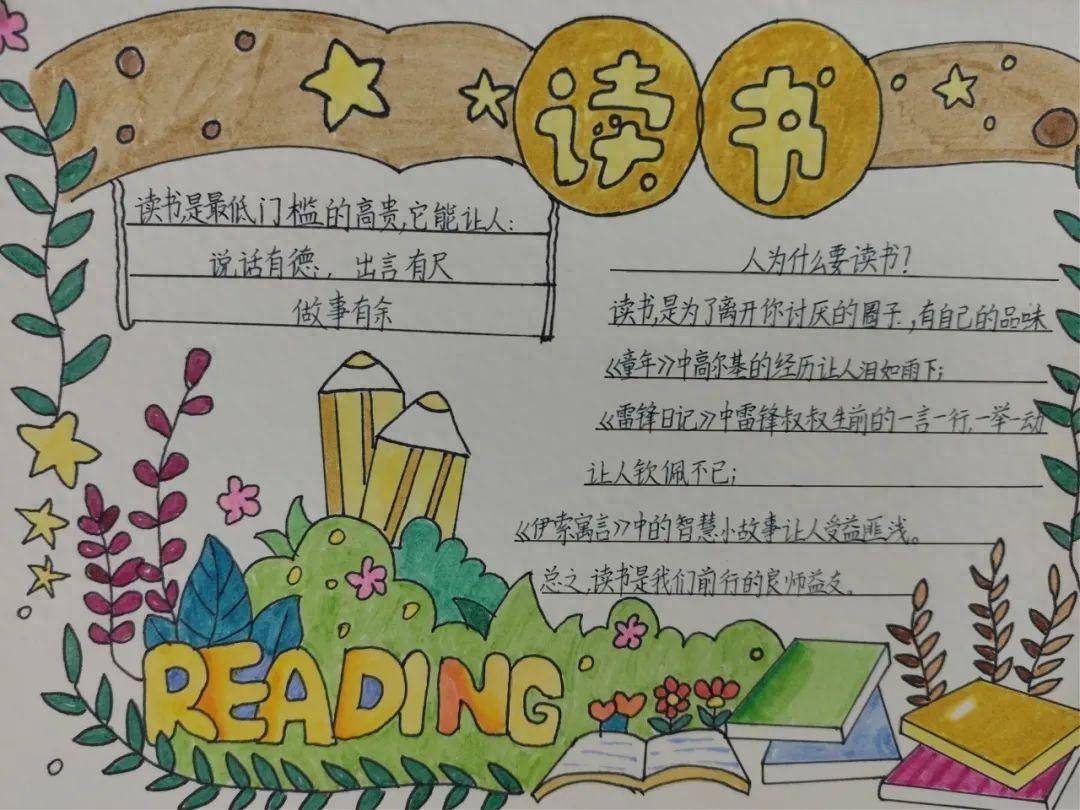 读书
读书,是最低门槛的高贵,它能让人:
说话有德, 出言有尺
做事有余
人为什么要读书?
读书,是为了离开你讨厌的圈子,有自己的品味
《童年》中高尔基的经历让人泪如雨下;
《雷锋日记》中雷锋叔叔生前的一言一行,一举一动
让人钦佩不已;
《伊索寓言》中的智慧小故事让人受益匪浅。
总之,读书是我们前行的良师益友。
READING